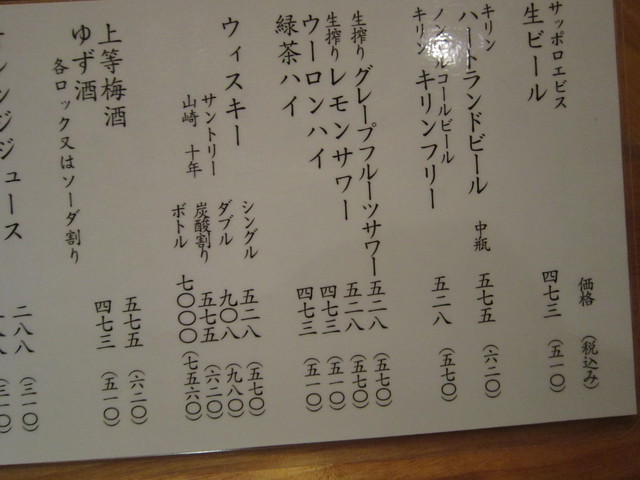 価格 (税込み)
サッポロエビス
生ビール 四七三 (五一〇)
キリン
ハートランドビール 中瓶 五七五 (六二〇)
ノンアルコールビール
キリン キリンフリー 五二八 (五七〇)
生搾り グレープフルーツサワー 五二八 (五七〇)
生搾り レモンサワー 五二八 (五七〇)
ウーロンハイ 四七三 (五一〇)
緑茶ハイ 四七三 (五一〇)
ウィスキー
サントリー
山崎 十年
シングル 五二八 (五七〇)
ダブル 九〇八 (九八〇)
炭酸割り 五七五 (六二〇)
ボトル 七〇〇〇 (七五六〇)
上等梅酒 五七五 (六二〇)
ゆず酒 四七三 (五一〇)
各ロック又はソーダ割り
二八八 (三一〇)
オレンジジュース